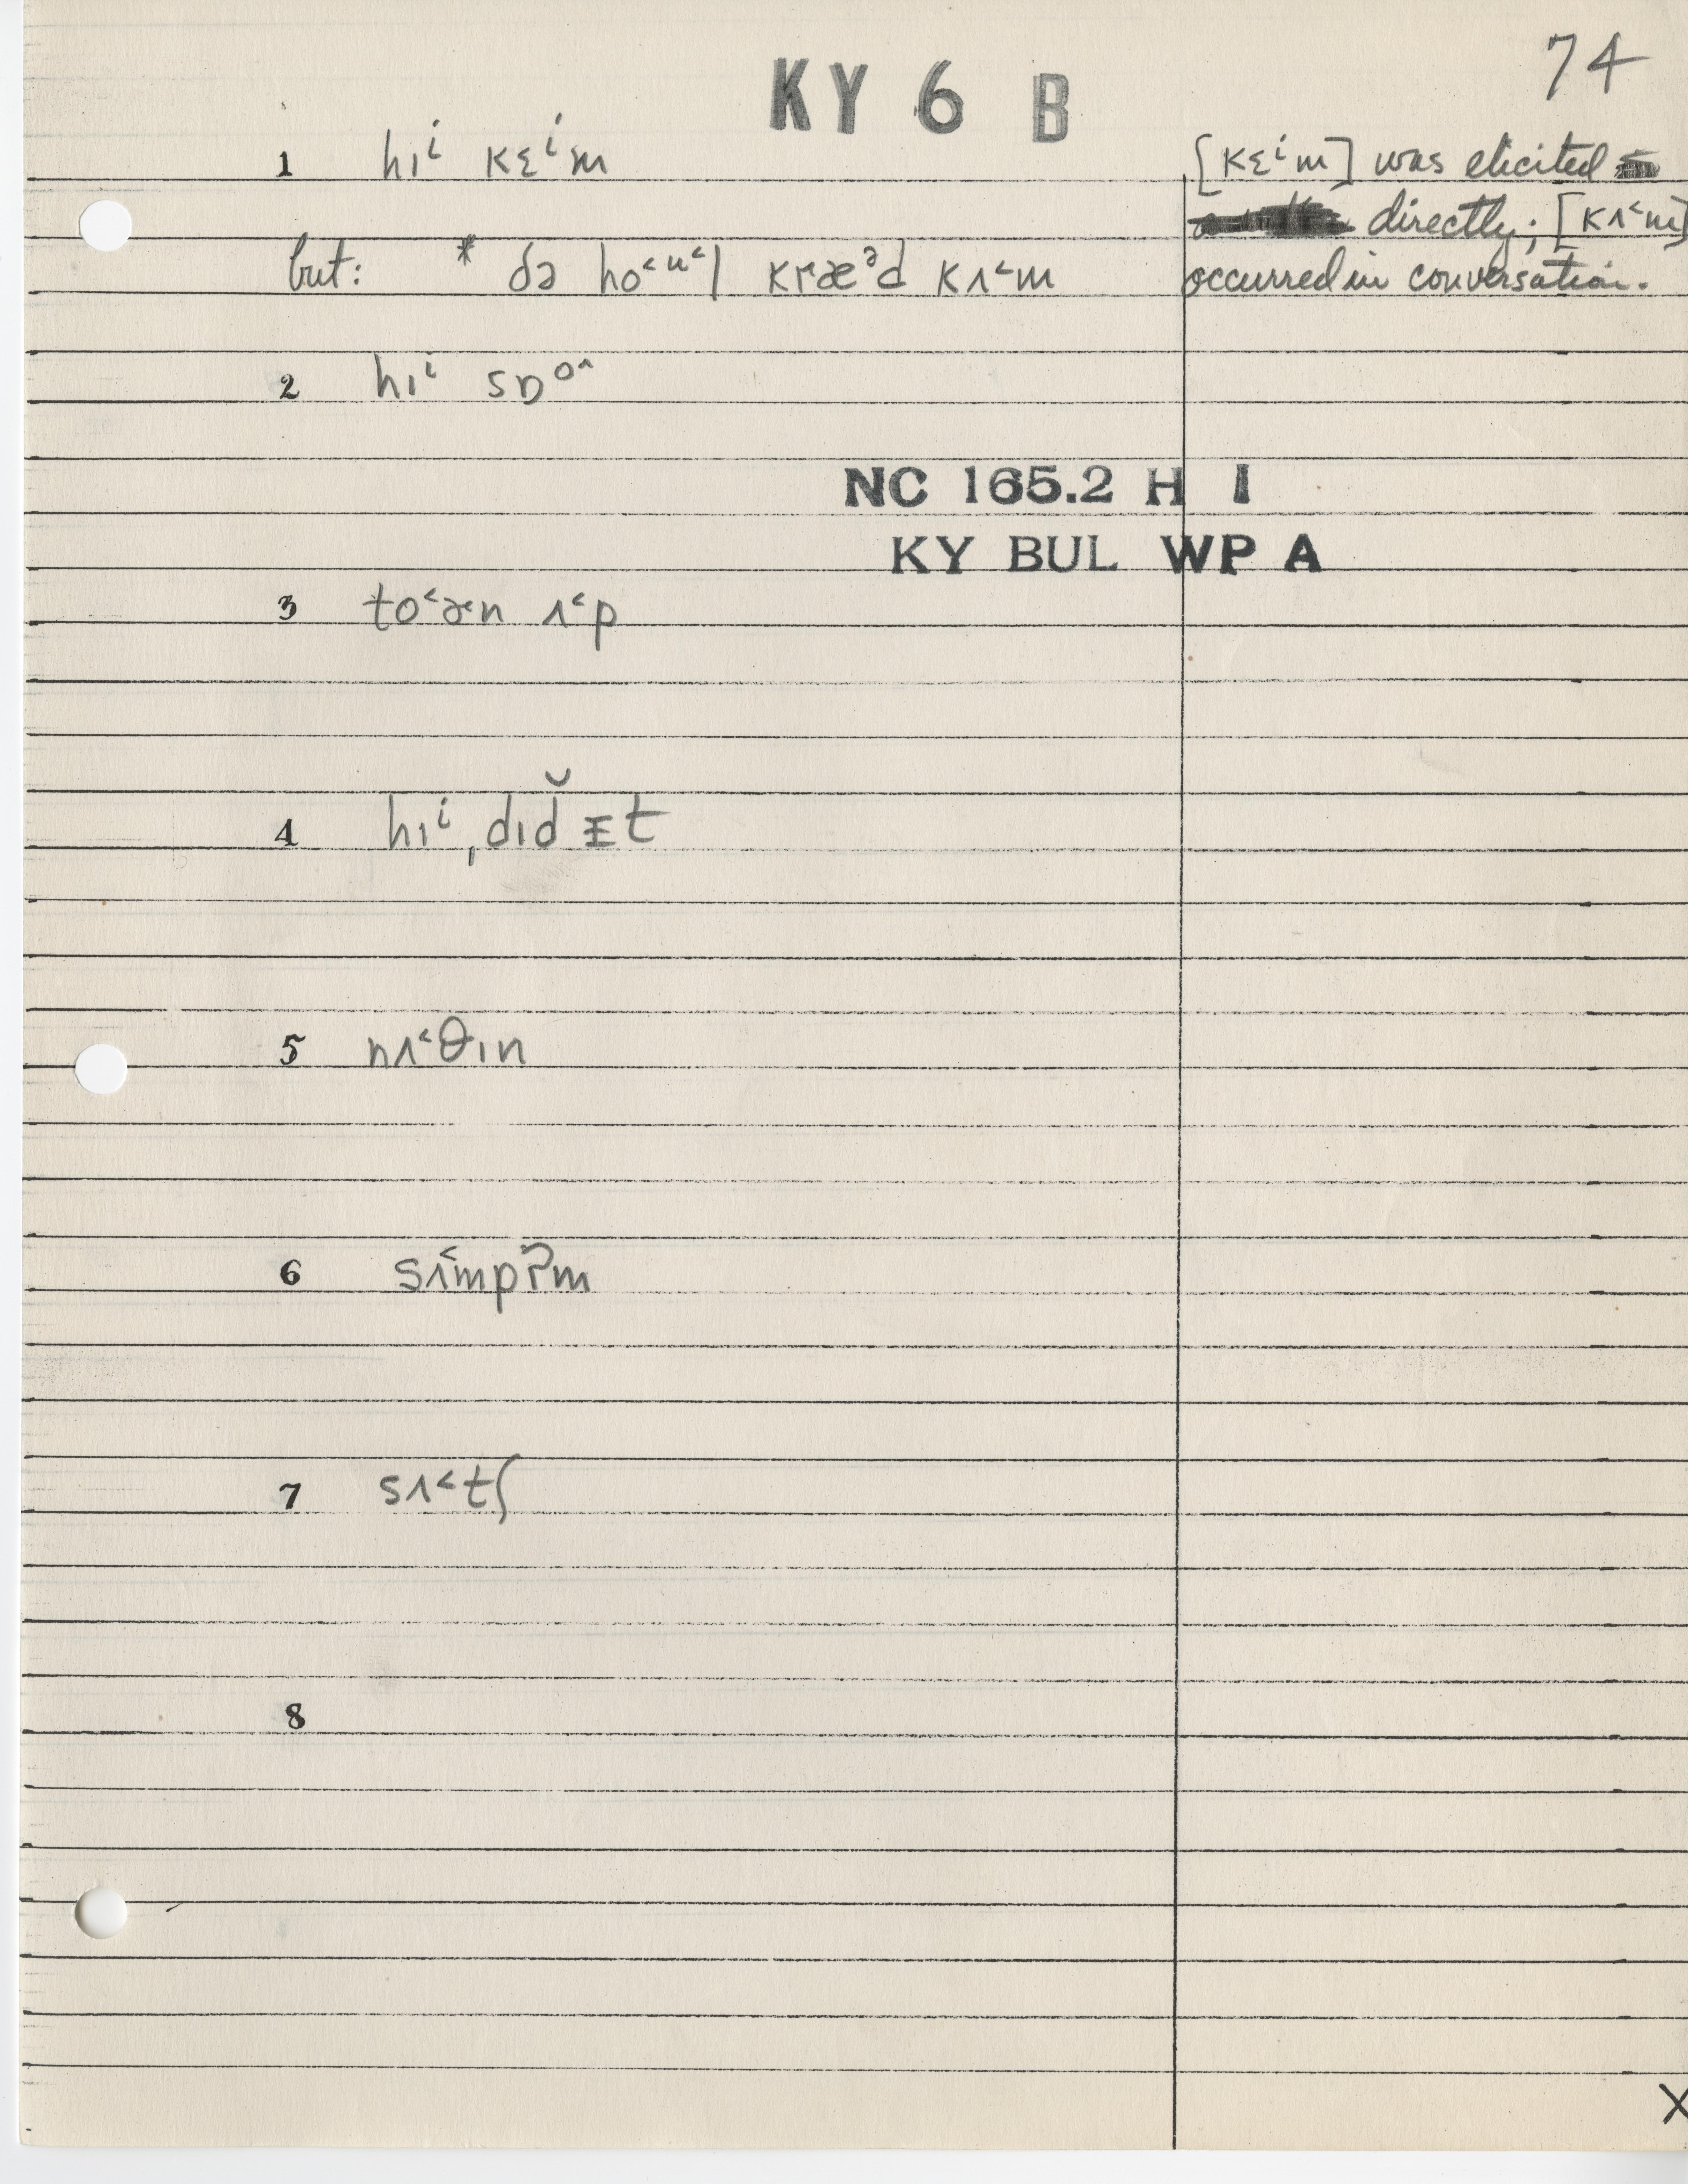 74
KY 6 B
1 hɪⁱ kɛⁱm
[kɛⁱm] was elicited
directly; [kʌ˂m]
but: * ðə ho˂ᵘ˂l kræᵊd kʌ˂m
occurred in conversation.
2 hɪⁱ sɒᵒ^
NC 165.2 H I
KY BUL WP A
3 to˂ɚn ʌ˂p
4 hɪⁱ ˌdɪd̆ ɪt
5 nʌ˂θɪn
6 sʌ˂mpm
7 sʌ˂tʃ
8
X